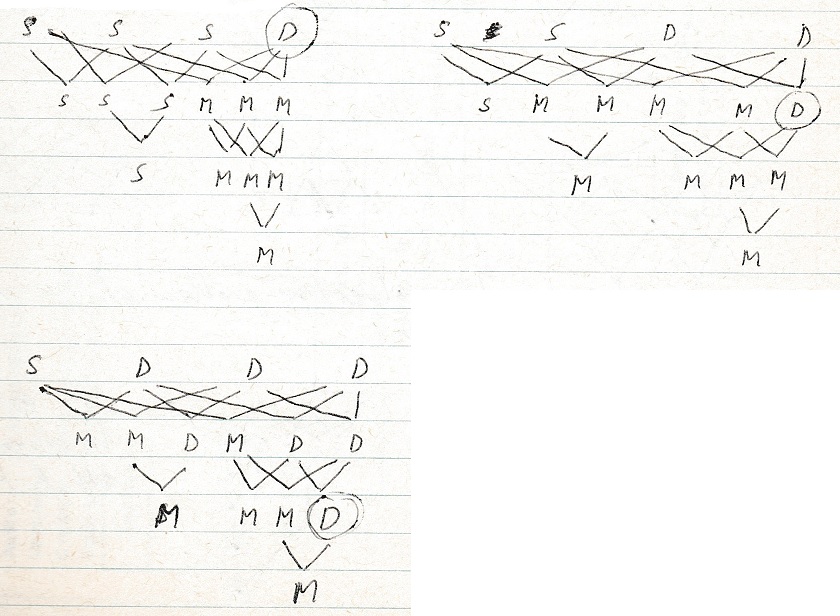 S S S D
S S S M M M
S M M M
M
S S D D
S M M M M D
M M M M
M
S D D D
M M D M D D
M M M D
M